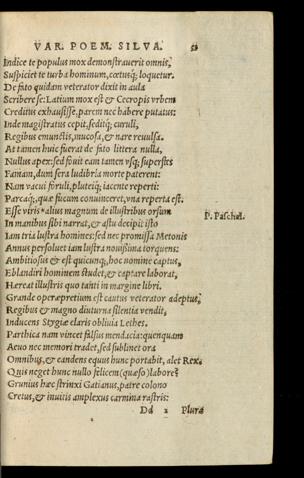 VAR. POEM. SILVA.
Indice te populus mox demonstrauerit omnis,
Suspiciet te turba hominum, coetusq; loquetur.
De fato quidam veterator dixit in aula
Scribere se: Latium mox est & Cecropis vrbem
Creditus exhausisse, parem nec habere putatus:
Inde magistratus cepit, seditq; curuli,
Regibus emunctis, mucosa, & nare reuulsa.
At tamen huic fuerat de fato littera nulla,
Nullus apex: sed fouit eam tamen vsq; superstes
Famam, dum sera ludibria morte paterent:
Nam vacui foruli, pluteiq; iacente reperti:
Parcaq, quæ fucum conuinceret, vna reperta est.
Esse viris * alius magnum de illustribus orsum
P. Paschal.
In manibus sibi narrat, & astu decipit: isto
Iam tria lustra homines: sed nec promissa Metonis
Annus persoluet iam lustra nouissima torquens:
Ambitiosus & est quicunq, hoc nomine captus,
Eblandiri hominem studet, & captare laborat,
Hæreat illustris quo tanti in margine libri.
Grande operæpretium est cautus veterator adeptus,
Regibus & magno diuturna silentia vendit,
Inducens Stygiæ claris obliuia Lethes.
Parthica nam vincet falsus mendacia: quenquam
Aeuo nec memori tradet, sed sublinet ora
Omnibus, & candens equus hunc portabit, alet Rex.
Quis neget hunc nullo felicem (quæso) labore?
Grunius hæc strinxi Gatianus, patre colono
Cretus, & inuitis amplexus carmina rastris:
Dd 2 Plura